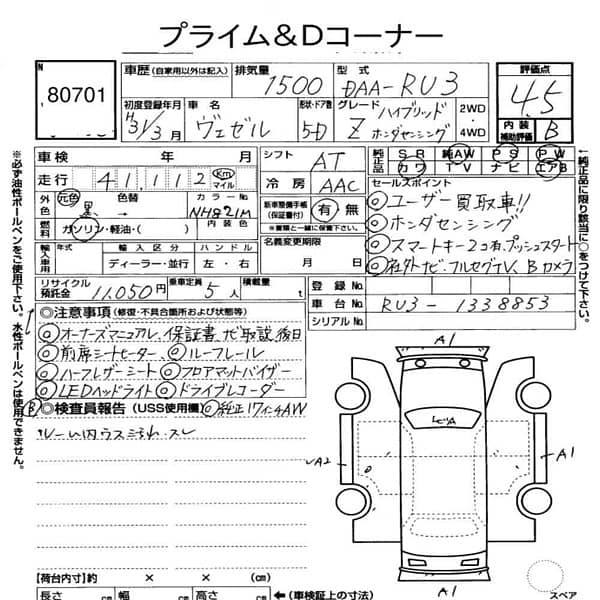 プライム＆Dコーナー
No 80701
車歴 (自家用以外は記入) 排気量 1500 型式 DAA-RU3 評価点 4.5
初度登録年月 H31/3月 車名 ヴェゼル 形状・ドア数 5D グレード ハイブリッド Z ホンダセンシング 2WD・4WD 内装補助評価 B
車検 年 月 シフト AT 純正品 SR 純AW PS PW
走行 41,112 Km マイル 冷房 AAC カワ TV ナビ エアB
外色 元色 黒 → 色替 カラーNo NH821M 新車整備手帳(保証書付) 有・無 ※書類と一緒に保管して下さい セールスポイント
燃料 ガソリン・軽油・( ) 内装色 名義変更期限 月 日
輸入車用 年式 輸入区分 ディーラー・並行 ハンドル 左・右
◎ユーザー買取車!!
◎ホンダセンシング
◎スマートキー2コ有、プッシュスタート
◎社外ナビ・フルセグTV、Bカメラ
リサイクル預託金 11,050円 乗車定員 5人 積載量 t 登録No
車台No RU3-1338853
シリアルNo
◎注意事項 (修復・不具合箇所および状態等)
◎オーナーズマニュアル、保証書、ナビ取説、後日
◎前席シートヒーター、◎ルーフレール
◎ハーフレザーシート◎フロアマットバイザー
◎LEDヘッドライト◎ドライブレコーダー
◎検査員報告 (USS使用欄) ◎純正17インチAW
B
ルーム内ウスヨゴレ・スレ
A1
A2
A1
A1
スペア
【荷台内寸】約 × × (cm)
長さ cm 幅 cm 高さ cm ←(車検証上の寸法)
※必ず油性ボールペンをご使用下さい。水性ボールペンは使用できません。
←純正品に限り該当に○をつけて下さい。